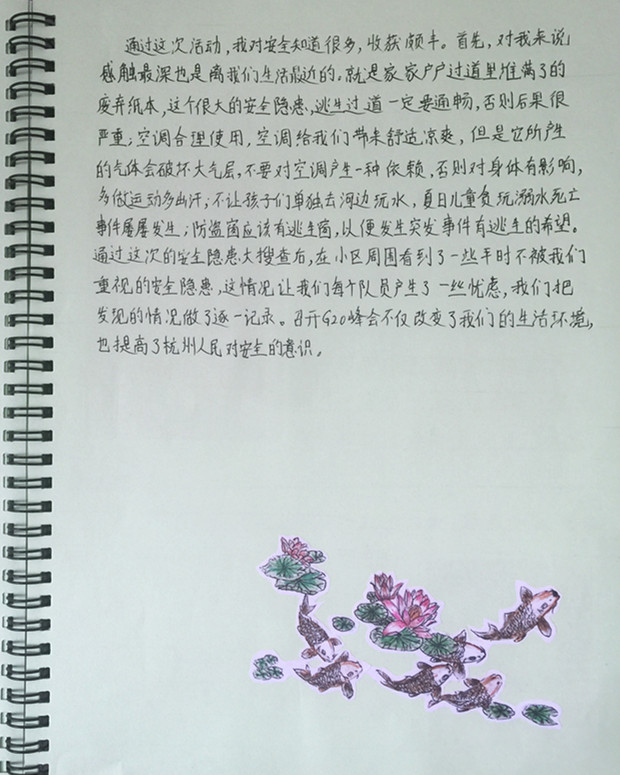 通过这次活动，我对安全知道很多，收获颇丰。首先，对我来说
感触最深也是离我们生活最近的。就是家家户户过道里堆满了的
废弃纸本，这个很大的安全隐患，逃生过道一定要通畅，否则后果很
严重；空调合理使用，空调给我们带来舒适凉爽，但是它所产生
的气体会破坏大气层，不要对空调产生一种依赖，否则对身体有影响，
多做运动多出汗；不让孩子们单独去河边玩水，夏日儿童贪玩溺水死亡
事件屡屡发生；防盗窗应该有逃生窗，以便发生突发事件有逃生的希望。
通过这次的安全隐患大搜查后，在小区周围看到了一些平时不被我们
重视的安全隐患，这情况让我们每个队员产生了一些忧虑，我们把
发现的情况做了逐一记录。召开G20峰会不仅改变了我们的生活环境，
也提高了杭州人民对安全的意识。